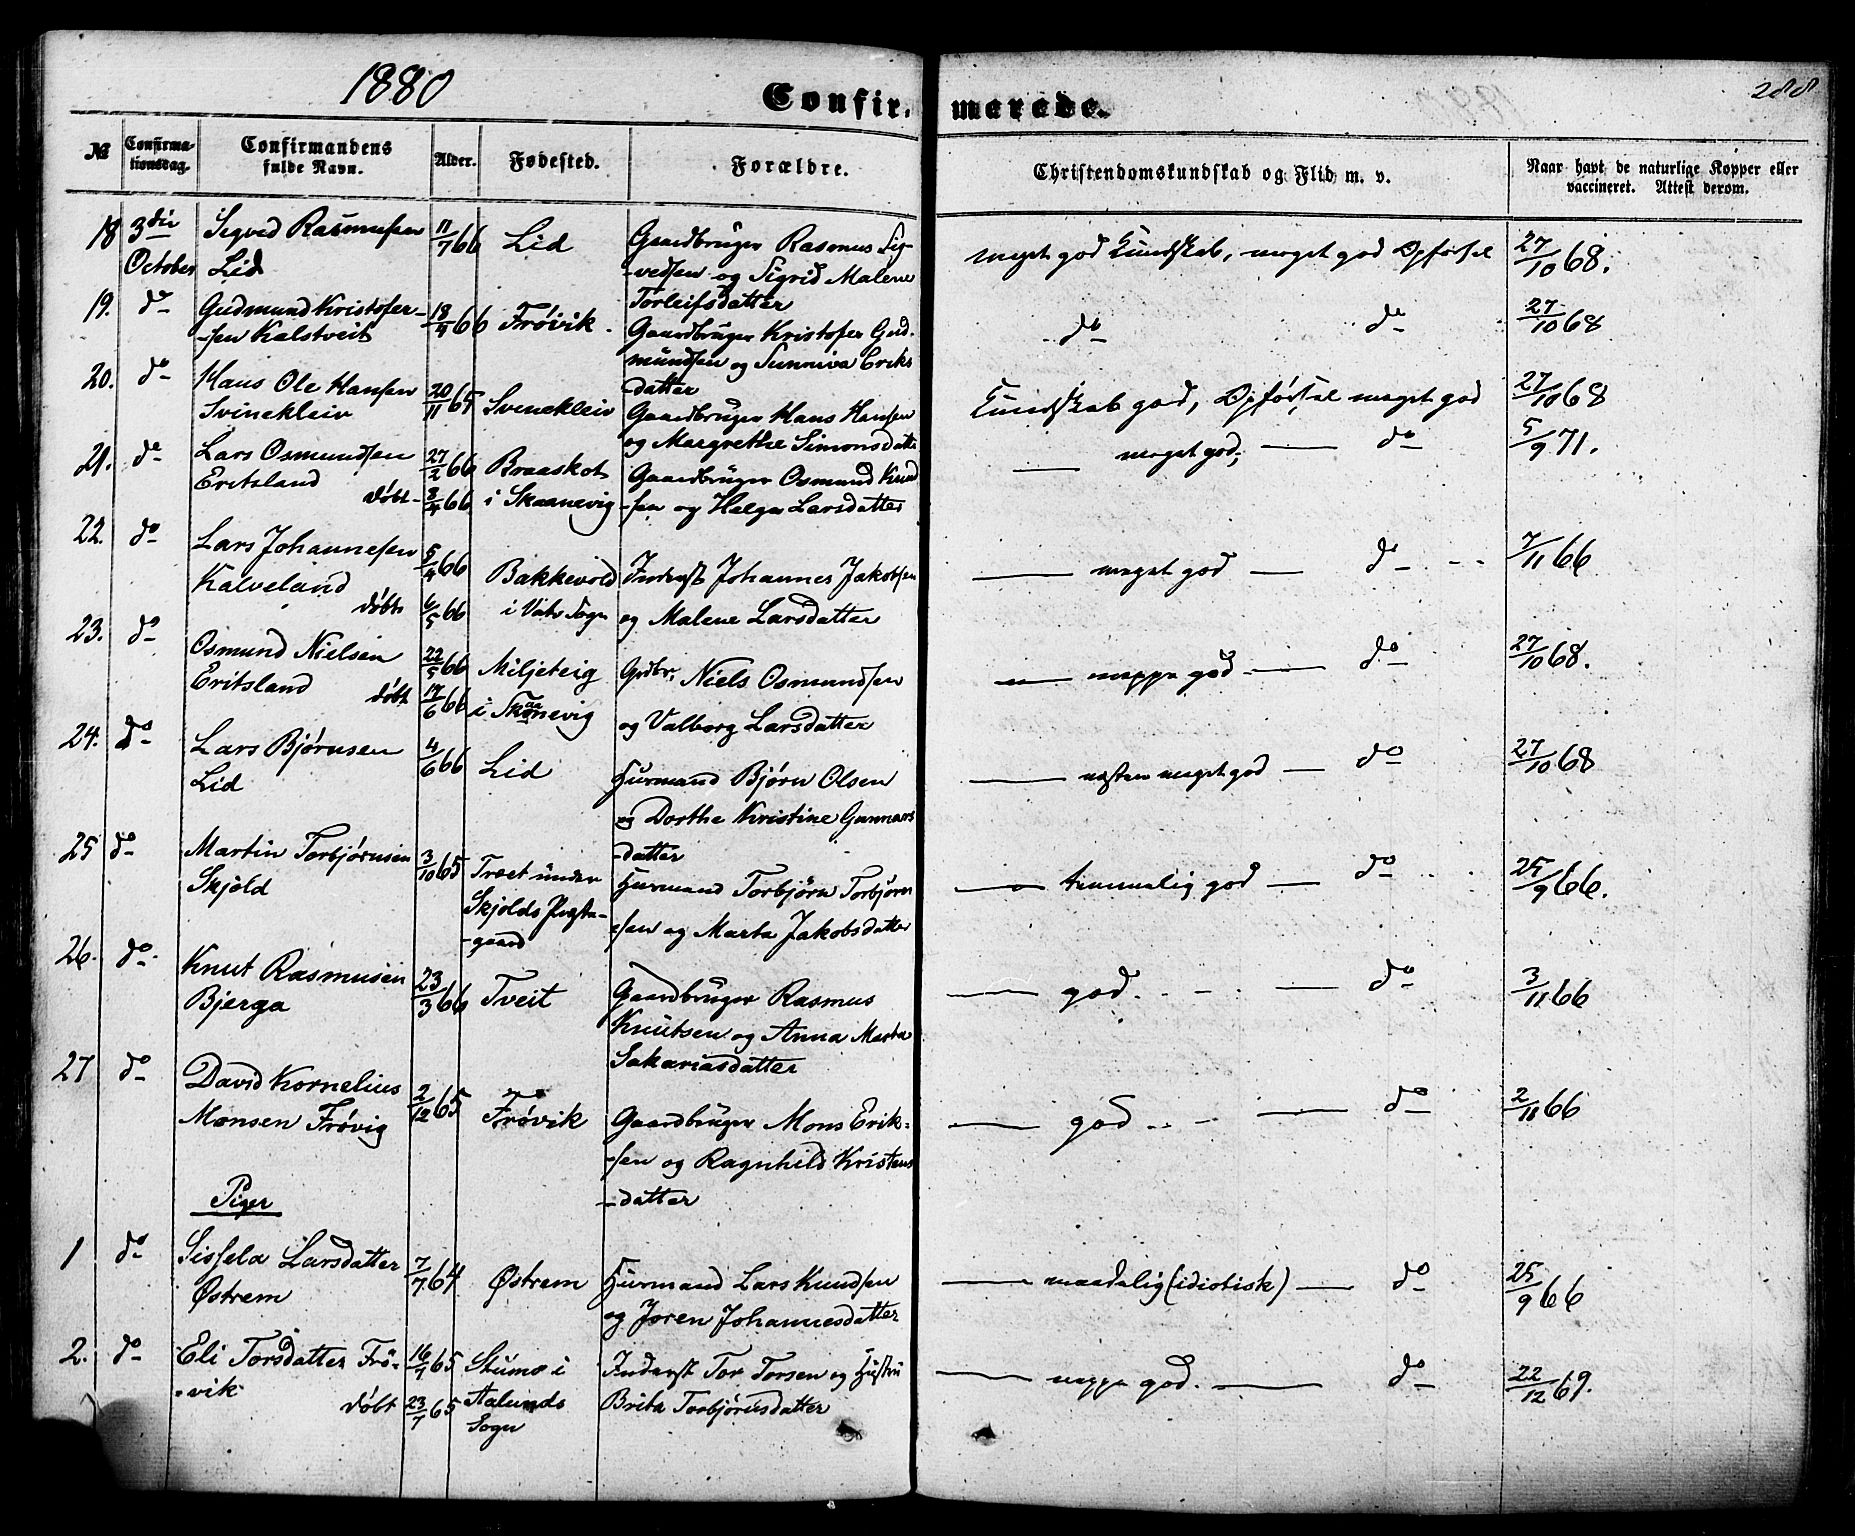 1880
Confirmerede.
288
№ Confirmationsdag. Confirmandens fulde Navn. Alder. Fødested. Forældre. Christendomskundskab og Flid m. v. Naar havt de naturlige Kopper eller vaccineret. Attest derom.
18 3die October Sigved Rasmussen Lid 11/7 66 Lid Gaardbruger Rasmus Sig-vedsen og Sigrid Malene Torleifsdatter meget god Kundskab, meget god Opførsel 27/10 68.
19. do Gudmund Kristofer-sen Kalstveit 18/4 66 Frøvik Gaardbruger Kristofer Gud-mundsen og Sunniva Eriks-datter do do 27/10 68
20. do Hans Ole Hansen Svinekleiv 20/11 65 Svinekleiv Gaardbruger Hans Hansen og Margrethe Simonsdatter Kundskab god, Opførsel meget god 27/10 68
21. do Lars Osmundsen Eritsland 27/2 66 døbt 8/4 66 Braaskot i Skaanevig Gaardbruger Osmund Knud-sen og Helga Larsdatter — meget god, — do 5/9 71.
22. do Lars Johannesen Kalveland 5/4 66 døbt 6/5 66 Bakkevold i Vats Sogn Inderst Johannes Jakobsen og Malene Larsdatter — meget god — do 7/11 66
23. do Osmund Nielsen Eritsland 22/5 66 døbt 17/6 66 Miljeteig i Skaanevig Grdbr. Niels Osmundsen og Valborg Larsdatter — neppe god — do 27/10 68.
24. do Lars Bjørnsen Lid 4/6 66 Lid Husmand Bjørn Olsen og Dorthe Kristine Gunnars-datter — næsten meget god — do 27/10 68
25 do Martin Torbjørnsen Skjold 3/10 65 Træet under Skjolds Præste-gaard Husmand Torbjørn Torbjørn-sen og Marta Jakobsdatter — temmelig god — do 25/9 66.
26. do Knut Rasmusen Bjerga 23/3 66 Tveit Gaardbruger Rasmus Knutsen og Anna Marta Sakariasdatter — god. — do 3/11 66
27 do David Kornelius Monsen Frøvig 2/12 65 Frøvik Gaardbruger Mons Erik-sen og Ragnhild Kristens-datter — god — do 2/11 66
Piger
1 do Sissela Larsdatter Østrem 7/7 64 Østrem Husmand Lars Knudsen og Joren Johannesdatter — maadelig (idiotisk) — do 25/9 66
2. do Eli Torsdatter Frø-vik 16/7 65 døbt 23/7 65 Stumo i Aalunds Sogn Inderst Tor Torsen og Hustru Brita Torbjørnsdatter — neppe god. — do 22/12 69.